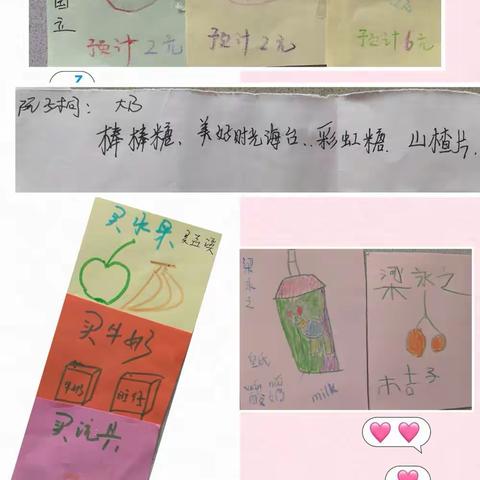 国立
预计2元
预计2元
预计6元
阮子桐：大B
棒棒糖、美好时光海台、彩虹糖、山楂片、
买水果
买牛奶
牛奶
旺仔
买玩具
梁永之
milk
梁永之
木吉子